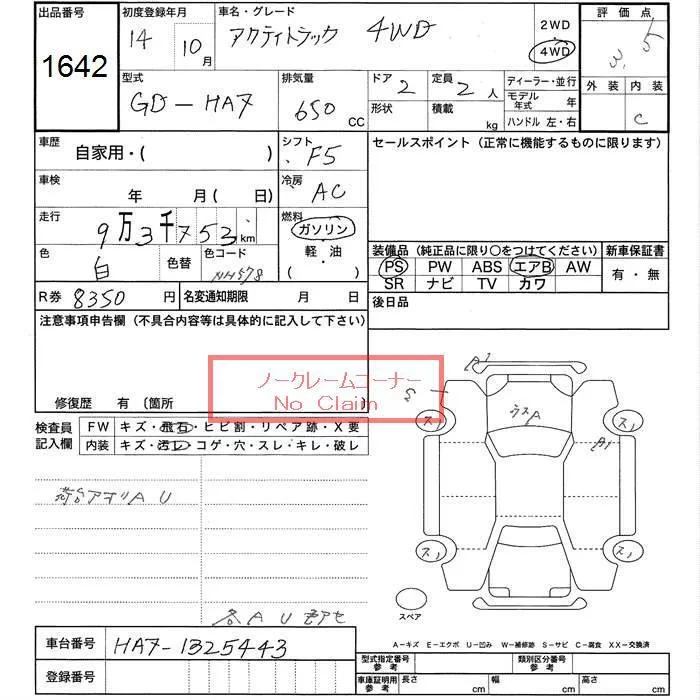 出品番号 初度登録年月 車名・グレード 2WD 評価点
1642 14 10月 アクティトラック 4WD 4WD 3.5
型式 排気量 ドア 定員 ディーラー・並行 外装 内装
GD-HA7 650 CC 2 2人 モデル年式 年 C
形状 積載 kg ハンドル 左・右
車歴 自家用・( ) シフト F5 セールスポイント (正常に機能するものに限ります)
車検 年 月 ( 日) 冷房 AC
走行 9万3千753km 燃料 ガソリン
軽・油
( )
色 白 色替 色コード NH578
装備品 (純正品に限り○をつけてください) 新車保証書
PS PW ABS エアB AW 有・無
SR ナビ TV カワ
R券 8350円 名変通知期限 月 日 後日品
注意事項申告欄 (不具合内容等は具体的に記入して下さい)
ノークレームコーナー
No Claim
修復歴 有 〔箇所
A1
ウスA
A1
ス1 ス1
ス1 ス1
スペア
検査員記入欄 FW キズ・飛石・ヒビ割・リペア跡・X要
内装 キズ・汚レ・コゲ・穴・スレ・キレ・破レ
荷台アオリAU
各AU
車台番号 HA7-1325443
登録番号
A-キズ E-エクボ U-凹み W-補修跡 S-サビ C-腐食 XX-交換済
型式指定番号参考 類別区分番号参考
車庫証明用参考 長さ cm 幅 cm 高さ cm